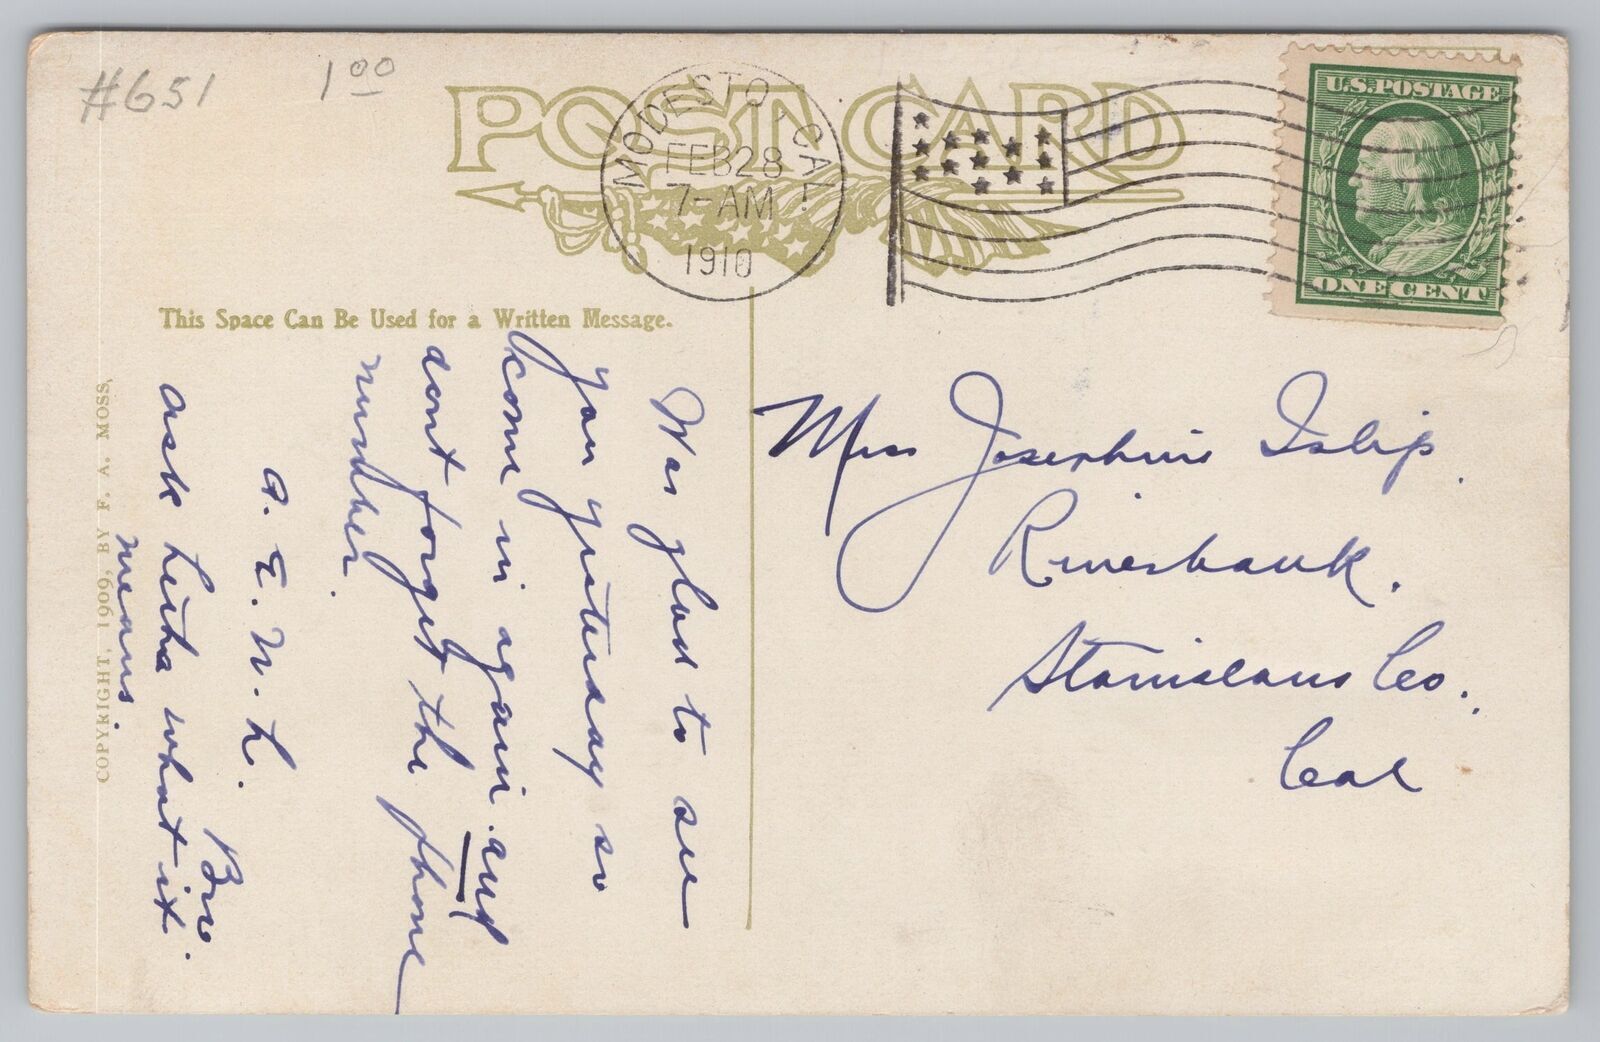 #651 1 00
POST CARD
MODESTO, CAL.
FEB 28
7-AM
1910
U.S. POSTAGE
ONE CENT
This Space Can Be Used for a Written Message.
Was glad to see
you yesterday so
come in again and
dont forget the phone
number.
A. E. N. L.
Bro.
ask Letha what it
means.
COPYRIGHT, 1909, BY F. A. MOSS,
Miss Josephine Islip.
Riverbank.
Stanislaus Co.
Cal